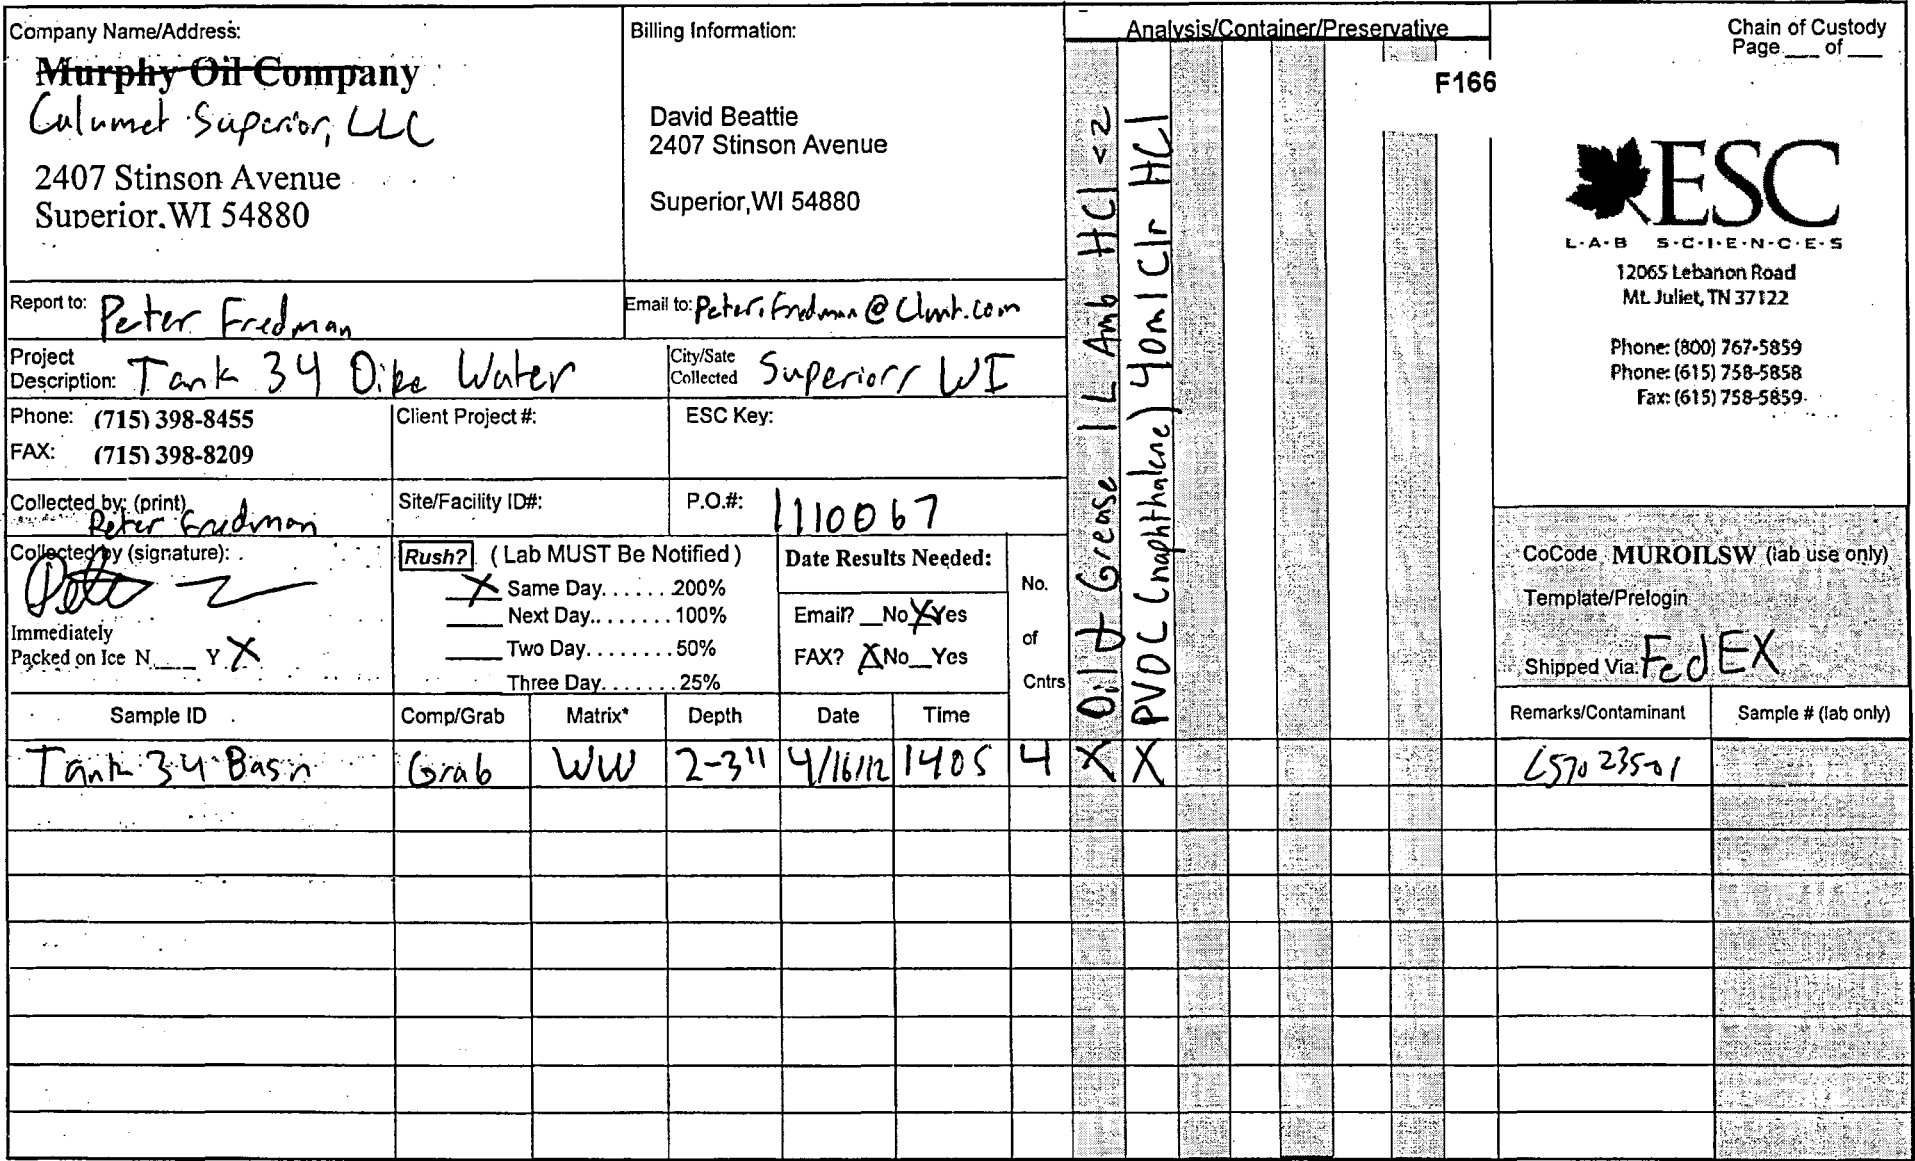 Company Name/Address:
Murphy Oil Company
Calumet Superior, LLC
2407 Stinson Avenue
Superior, WI 54880
Billing Information:
David Beattie
2407 Stinson Avenue
Superior, WI 54880
Analysis/Container/Preservative
F166
Oil & Grease 1 L Amb HCl <2
PVOC (naphthalene) 40ml Clr HCl
Chain of Custody
Page ___ of ___
ESC
L·A·B S·C·I·E·N·C·E·S
12065 Lebanon Road
Mt. Juliet, TN 37122
Phone: (800) 767-5859
Phone: (615) 758-5858
Fax: (615) 758-5859
Report to: Peter Fredman
Email to: Peter.Fredman@Clmt.com
Project
Description: Tank 34 Dike Water
City/Sate
Collected Superior, WI
Phone: (715) 398-8455
FAX: (715) 398-8209
Client Project #:
ESC Key:
Collected by: (print)
Peter Fredman
Site/Facility ID#:
P.O.#: 1110067
Collected by (signature):
Immediately
Packed on Ice N ___ Y X
Rush? (Lab MUST Be Notified)
X Same Day. . . . . . 200%
___ Next Day. . . . . . . . 100%
___ Two Day. . . . . . . . 50%
Three Day. . . . . . . 25%
Date Results Needed:
Email? __No X Yes
FAX? X No__Yes
No.
of
Cntrs
CoCode MUROILSW (lab use only)
Template/Prelogin
Shipped Via: FedEX
Sample ID Comp/Grab Matrix* Depth Date Time Remarks/Contaminant Sample # (lab only)
Tank 34 Basin Grab WW 2-3" 4/16/12 1405 4 X X L570235-01